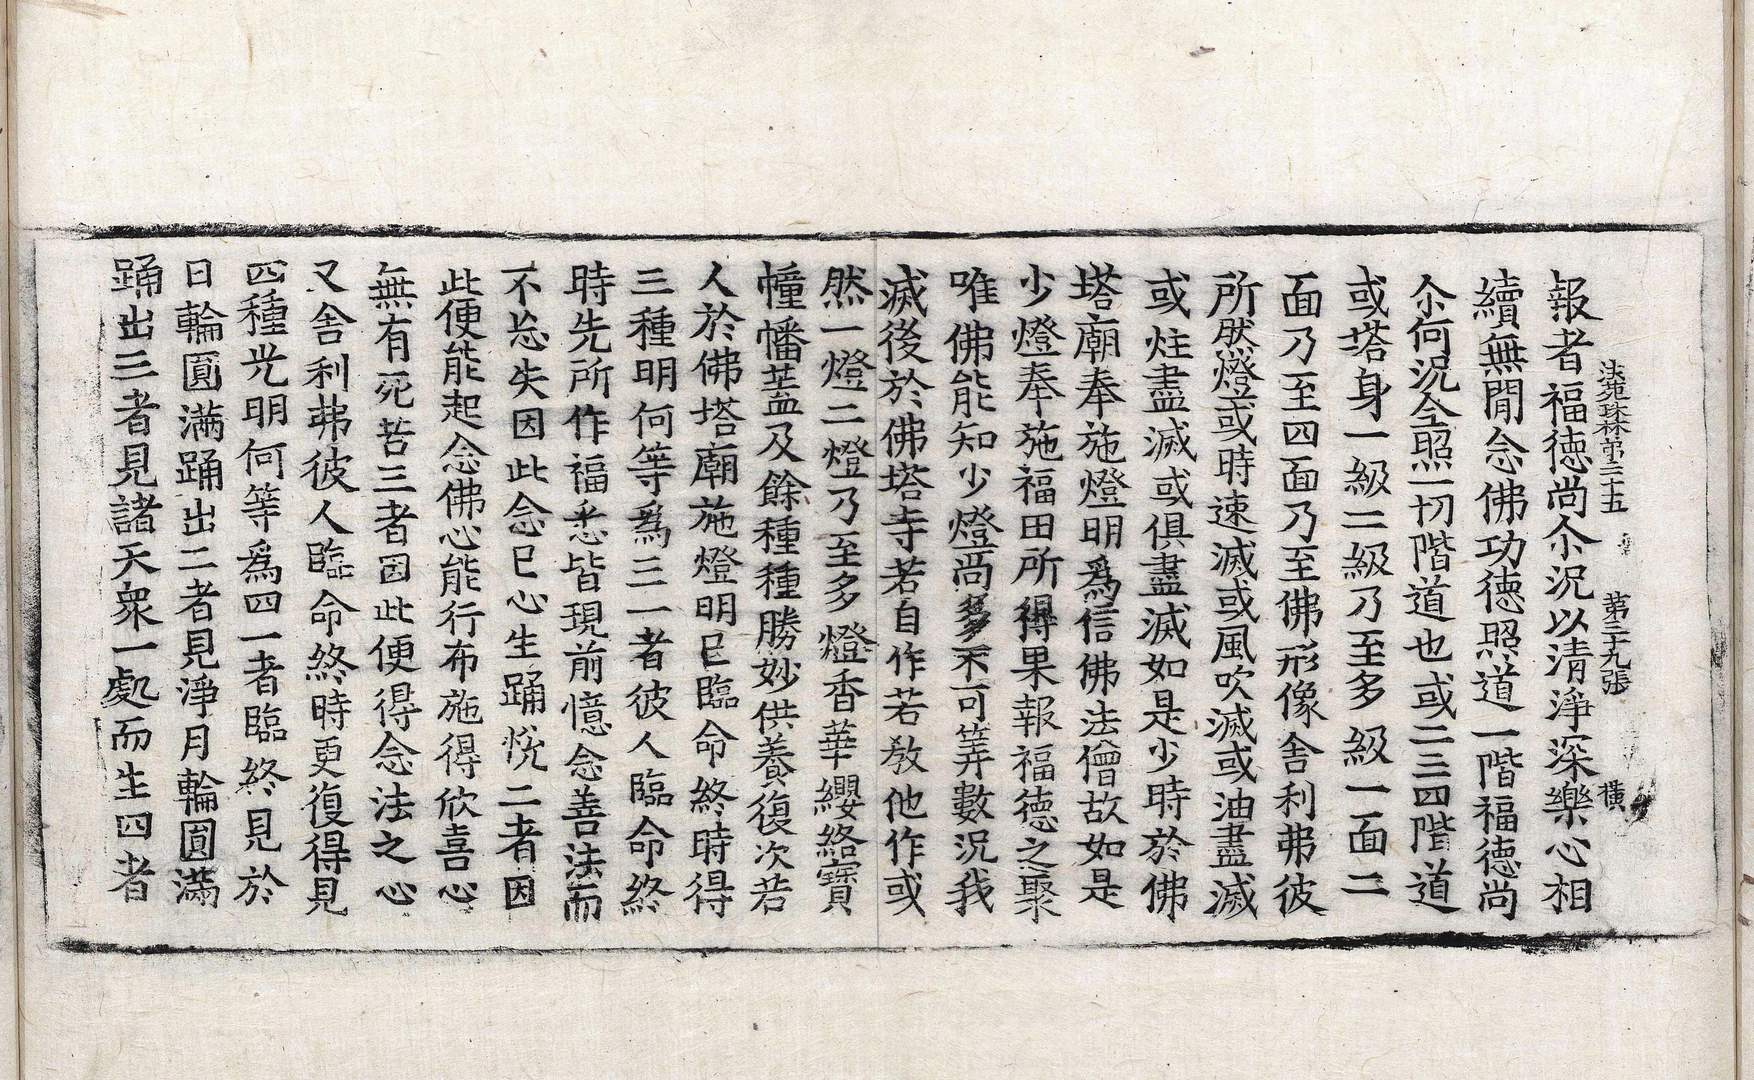 法苑珠林第三十五　第三十九張　橫
報者福德尚尒況以清淨深樂心相
續無閒念佛功德照道一階福德尚
尒何況全照一切階道也或二三四階道
或塔身一級二級乃至多級一面二
面乃至四面乃至佛形像舍利弗彼
所然燈或時速滅或風吹滅或油盡滅
或炷盡滅或俱盡滅如是少時於佛
塔廟奉施燈明為信佛法僧故如是
少燈奉施福田所得果報福德之聚
唯佛能知少燈尚多不可筭數況我
滅後於佛塔寺若自作若教他作或
然一燈二燈乃至多燈香華纓絡寶
幢幡葢及餘種種勝妙供養復次若
人於佛塔廟施燈明已臨命終時得
三種明何等為三一者彼人臨命終
時先所作福悉皆現前憶念善法而
不忘失因此念已心生踊悅二者因
此便能起念佛心能行布施得欣喜心
無有死苦三者因此便得念法之心
又舍利弗彼人臨命終時更復得見
四種光明何等為四一者臨終見於
日輪圓滿踊出二者見淨月輪圓滿
踊出三者見諸天眾一處而生四者